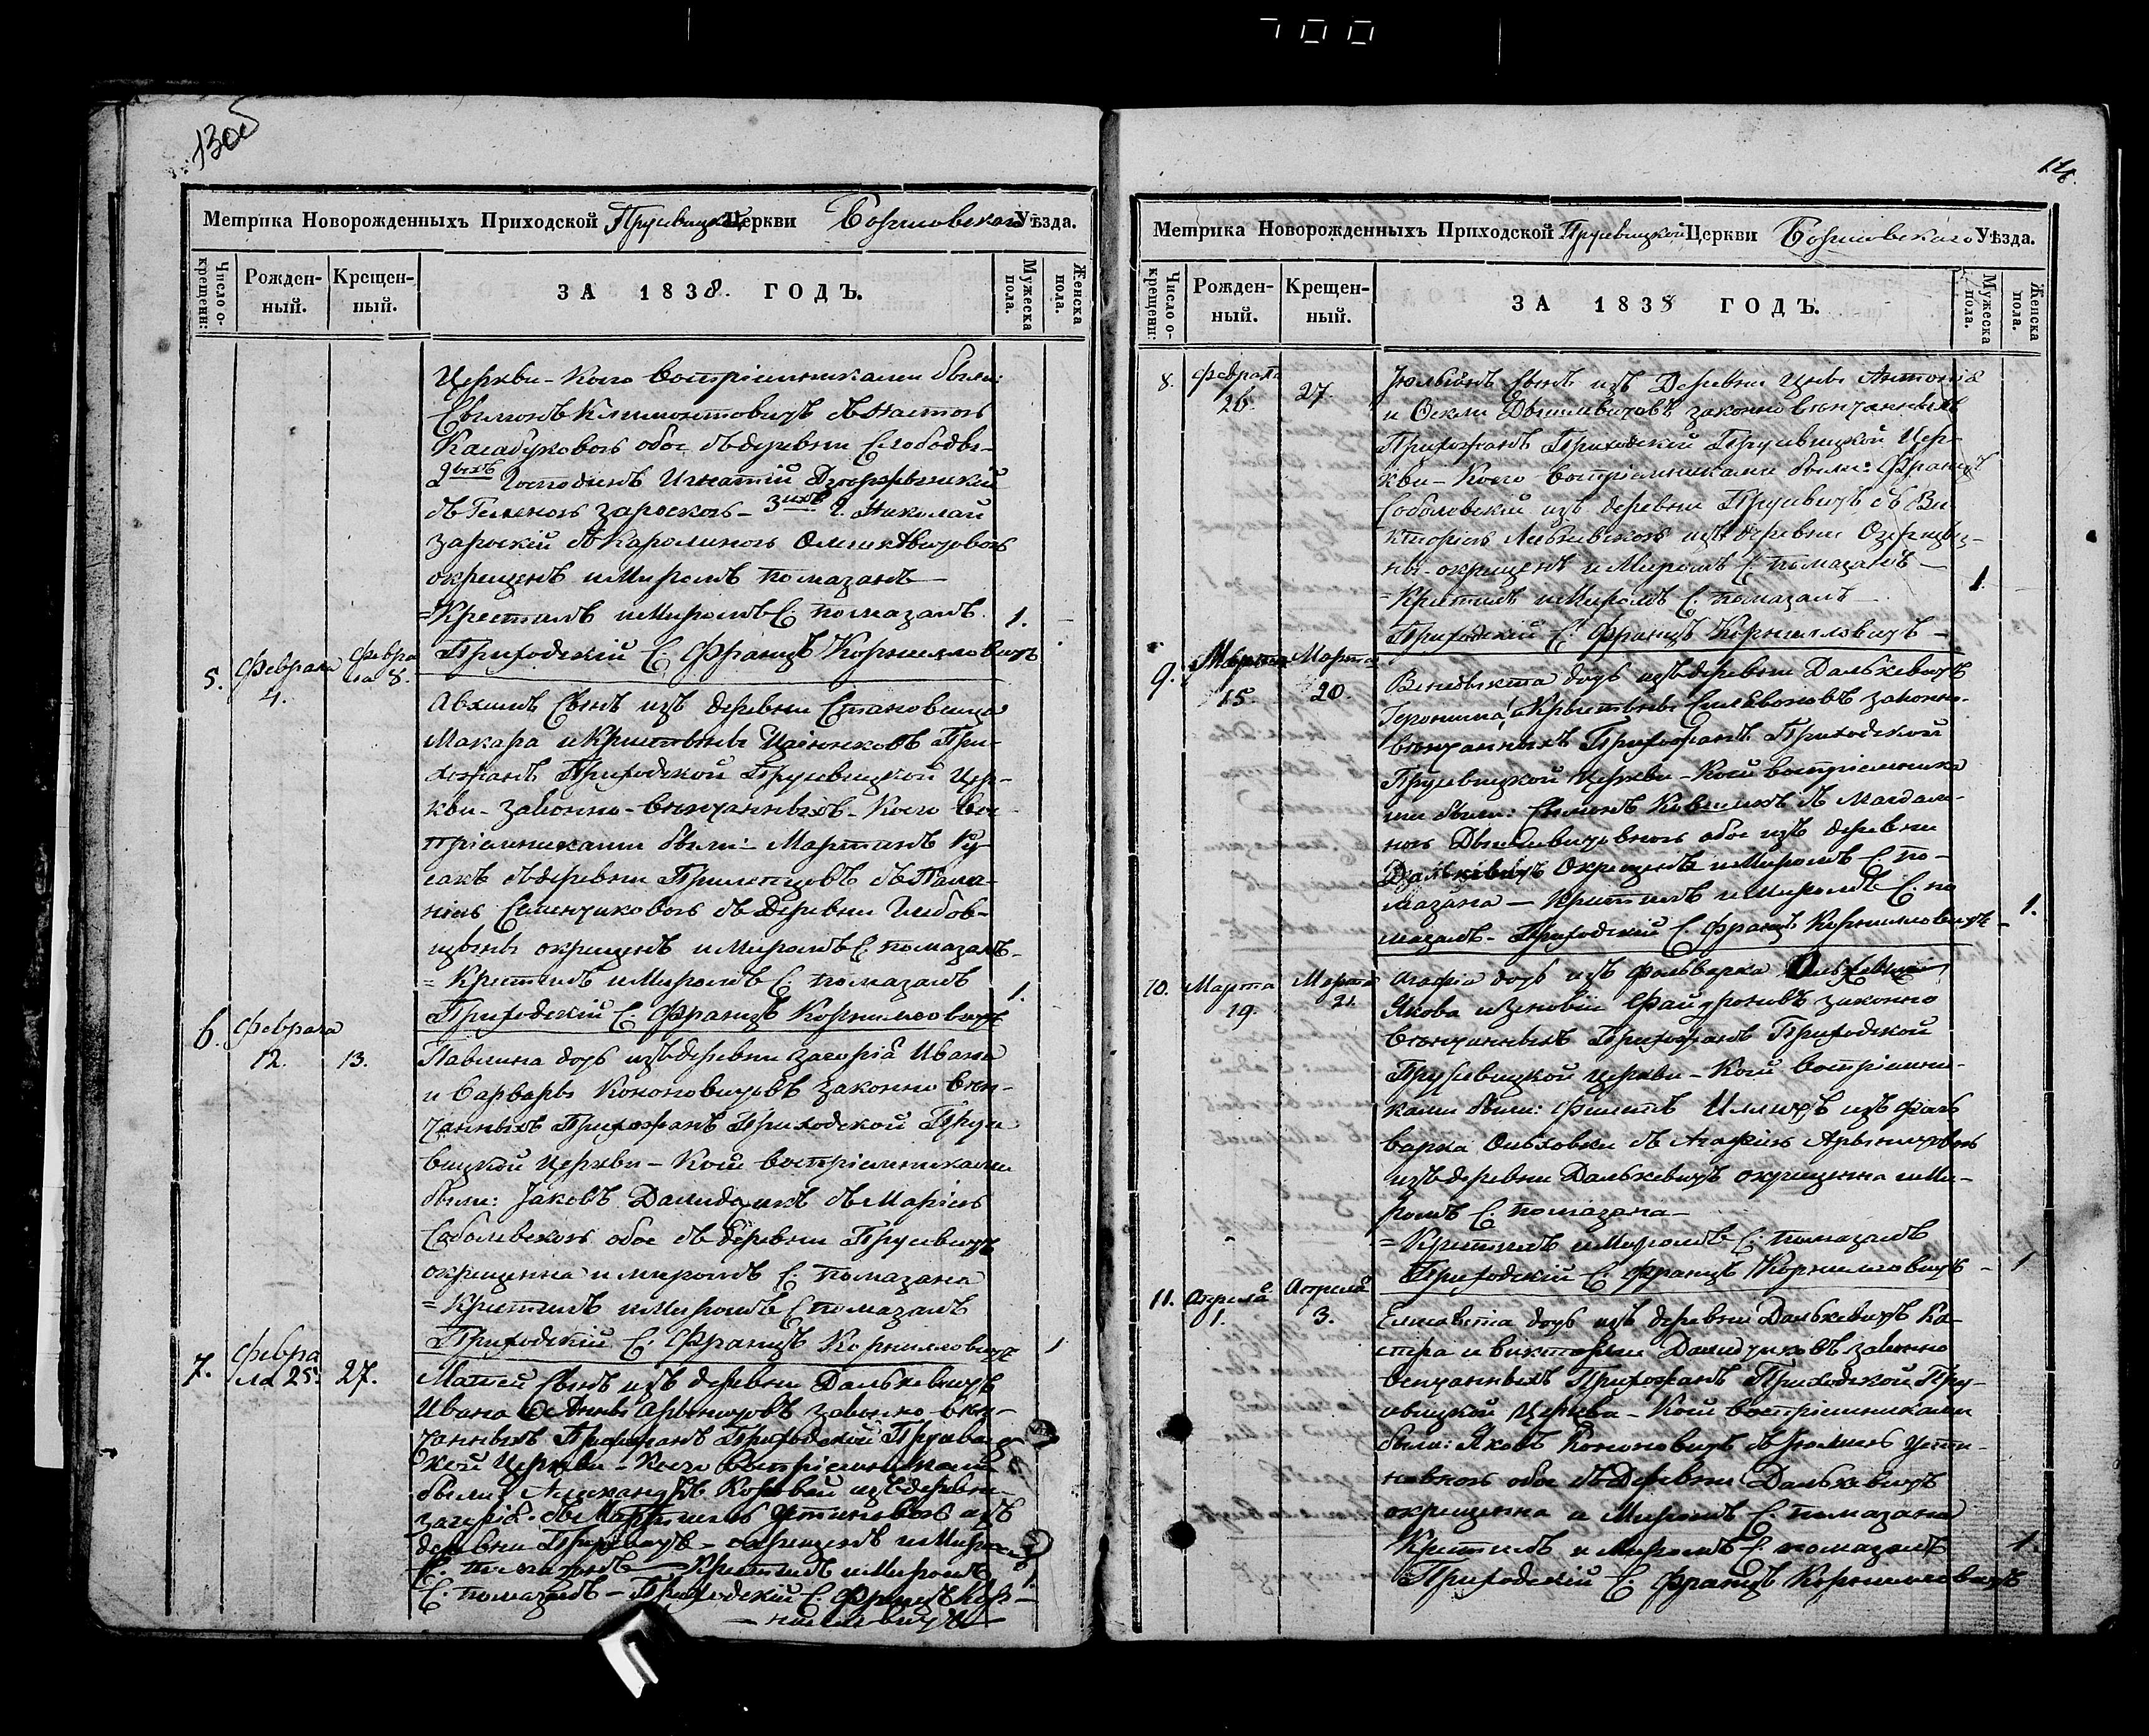 700
13об
Метрика Новорожденныхъ Приходской Прусевицкой Церкви Борисовскаго Уѣзда.
Число о-
крещенн:
Рожден-
ный.
Крещен-
ный.
ЗА 1838. ГОДЪ.
Мужеска
пола.
Женска
пола.
Церкви - Кого воспріемниками были:
Сымонъ Климонтовичъ съ Настою
обое съ деревни Слободы -
2ыхъ Господинъ Игнатій
съ Зароскою - 3ихъ Г. Николай
Зароскій съ Каролиною
окрещенъ и Миромъ помазанъ
= Крестилъ и Миромъ С. помазалъ. 1.
Приходскій С. Францъ Корниловичъ
5. Февраля 4. Февра
ля 8.
Сынъ изъ деревни Становища
Макара и Крыстыны При-
хожанъ Приходской Прусевицкой Цер-
кви - законно - вѣнчанныхъ - Коего вос-
пріемниками были: Мартинъ Ру-
сакъ съ деревни съ
съ Деревни Глибов-
щыны окрещенъ и Миромъ С. помазанъ -
= Крестилъ и Миромъ С. помазалъ 1.
Приходскій С. Францъ Корниловичъ
6. Февраля
12. 13.
Павлина дочь изъ деревни Загорія Ивана
и Варвары Кононовичовъ законно вѣн-
чанныхъ Прихожанъ Приходской Прусе
вицкой Церкви - Коей воспріемниками
были: Іаковъ съ Маріею
Соболевскою обое съ деревни Прусевичъ
окрещенна и миромъ С. помазана
= Крестилъ и Миромъ С. помазалъ
Приходскій С. Францъ Корниловичъ 1
7. Февра
ля 25. 27.
Матей Сынъ изъ деревни Далькевичъ
Ивана и Анны законно вѣн-
чанныхъ Прихожанъ Приходской Прусевиц
кой Церкви - Коего воспріемниками
были: Александръ изъ деревни
Загорія съ Устиновою изъ
деревни Прусевичъ - окрещенъ и Миромъ
С. помазанъ - Крестилъ и Миромъ 1.
С. помазалъ - Приходскій С. Францъ Кор-
- ниловичъ -
14.
Метрика Новорожденныхъ Приходской Прусевицкой Церкви Борисовскаго Уѣзда.
Число о-
крещенн:
Рожден-
ный.
Крещен-
ный.
ЗА 1838 ГОДЪ.
Мужеска
пола.
Женска
пола.
8. Февраля
26. 27.
Сынъ изъ Деревни Цны Антонія
и Феклы законно вѣнчанныхъ
Прихожанъ Приходской Прусевицкой Цер-
кви - Коего воспріемниками были: Францъ
Соболевскій изъ деревни Прусевичъ съ Ви-
кторіею изъ деревни
ны - окрещенъ и Миромъ С. помазанъ - 1.
= Крестилъ и Миромъ С. помазалъ
Приходскій С. Францъ Корниловичъ -
9. Марта
15. Марта
20.
Венедыкта дочь изъ деревни Далькевичъ
Геронима и Крыстыны законно-
вѣнчанныхъ Прихожанъ Приходской
Прусевицкой Церкви - Коей воспріемника
ми были: Сымонъ съ Магдале-
ною обое изъ деревни
Далькевичъ Окрещенъ и Миромъ С. по-
мазана - Крестилъ и Миромъ С. по 1.
мазалъ - Приходскій С. Францъ Корниловичъ -
10. Марта
19. Марта
21.
Агафія дочь изъ фольварка Ольховки
Якова и Зеновіи законно
вѣнчанныхъ Прихожанъ Приходской
Прусевицкой Церкви - Коей воспріемни-
ками были: Филипъ изъ фоль
варка Ольховки съ Агафіею
изъ деревни Далькевичъ окрещенна и Ми-
ромъ С. помазана -
= Крестилъ и Миромъ С. помазалъ
Приходскій С. Францъ Корниловичъ - 1
11. Апреля
1. Апреля
3.
Елисавета дочь изъ деревни Далькевичъ
и Викторыи законно
венчанныхъ Прихожанъ Приходской Прус-
евицкой Церкви - Коей воспріемниками
были: Яковъ Кононовичъ съ Усти-
новною обое съ Деревни Далькевичъ
окрещенна и Миромъ С. помазана
Крестилъ и Миромъ С. помазалъ 1.
Приходскій С Францъ Корниловичъ